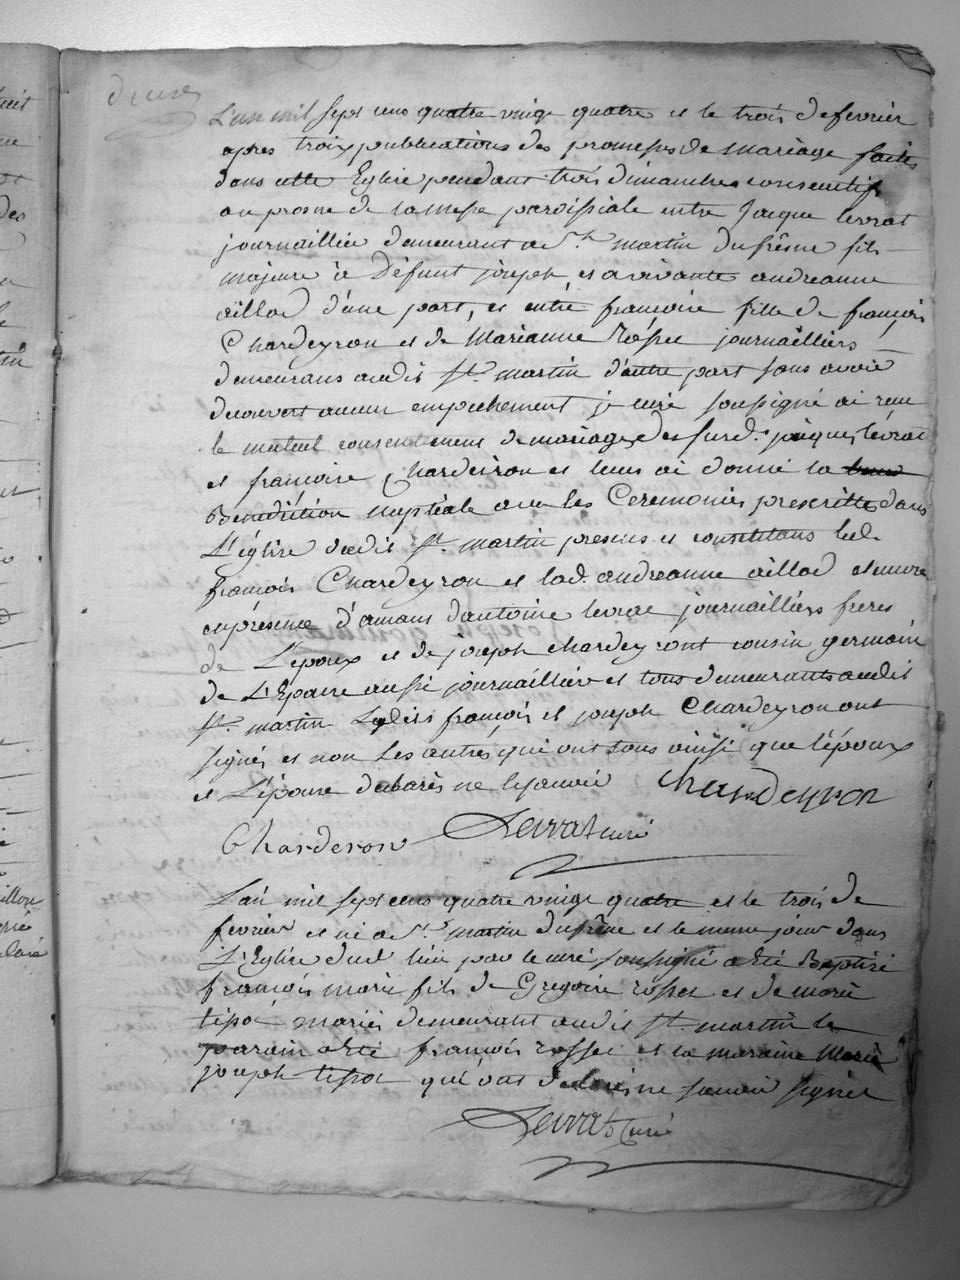 L'an mil sept cens quatre vingt quatre et le trois de fevrier
apres trois publications des promesses de mariage faites
dans cette Eglise pendant trois dimanches consecutifs
au prosne de la messe paroissiale entre Jaque levrat
journaillier demeurant a St. martin du frêsne fils
majeur à Défunt joseph et a vivante andreanne
aillod d'une part, et entre françoise fille de françois
Chardeyron et de Marianne rosset journailliers
demeurans audit St. martin d'autre part sans avoir
decouvert aucun empechement je curé soussigné ai reçu
le mutuel consentement de mariage des susd. jaques levrat
et francoise Chardeiron et leur ai donné la
Benediction nuptiale avec les Ceremonies prescrittes dans
L'église dudit St. martin presens et consentans led.
françois Chardeyron et lad. andreanne aillod et encore
en présence d'amans d'antoine levrat journailliers freres
de L'époux et de joseph chardeyront cousin germain
de L'Epouse aussi journaillier et tous demeurants audit
St. martin Lesdits françois et joseph Chardeyron ont
signés et non Les autres qui ont tous ainsi que l'époux
et L'épouse declarés ne le sçavoir Chardeyron
Charderon Levrat curé
L'an mil sept cens quatre vingt quatre et le trois de
fevrier est né a St. martin du frêne et le meme jour dans
L'Eglise dud lieu par le curé soussigné a été Baptisé
françois marie fils de Gregoire rosset et de marie
tissot mariés demeurant audit St. martin le
parain a été françois rosset et la maraine Marie
joseph tissot qui ont declarés ne scavoir signer
Levrat Curé